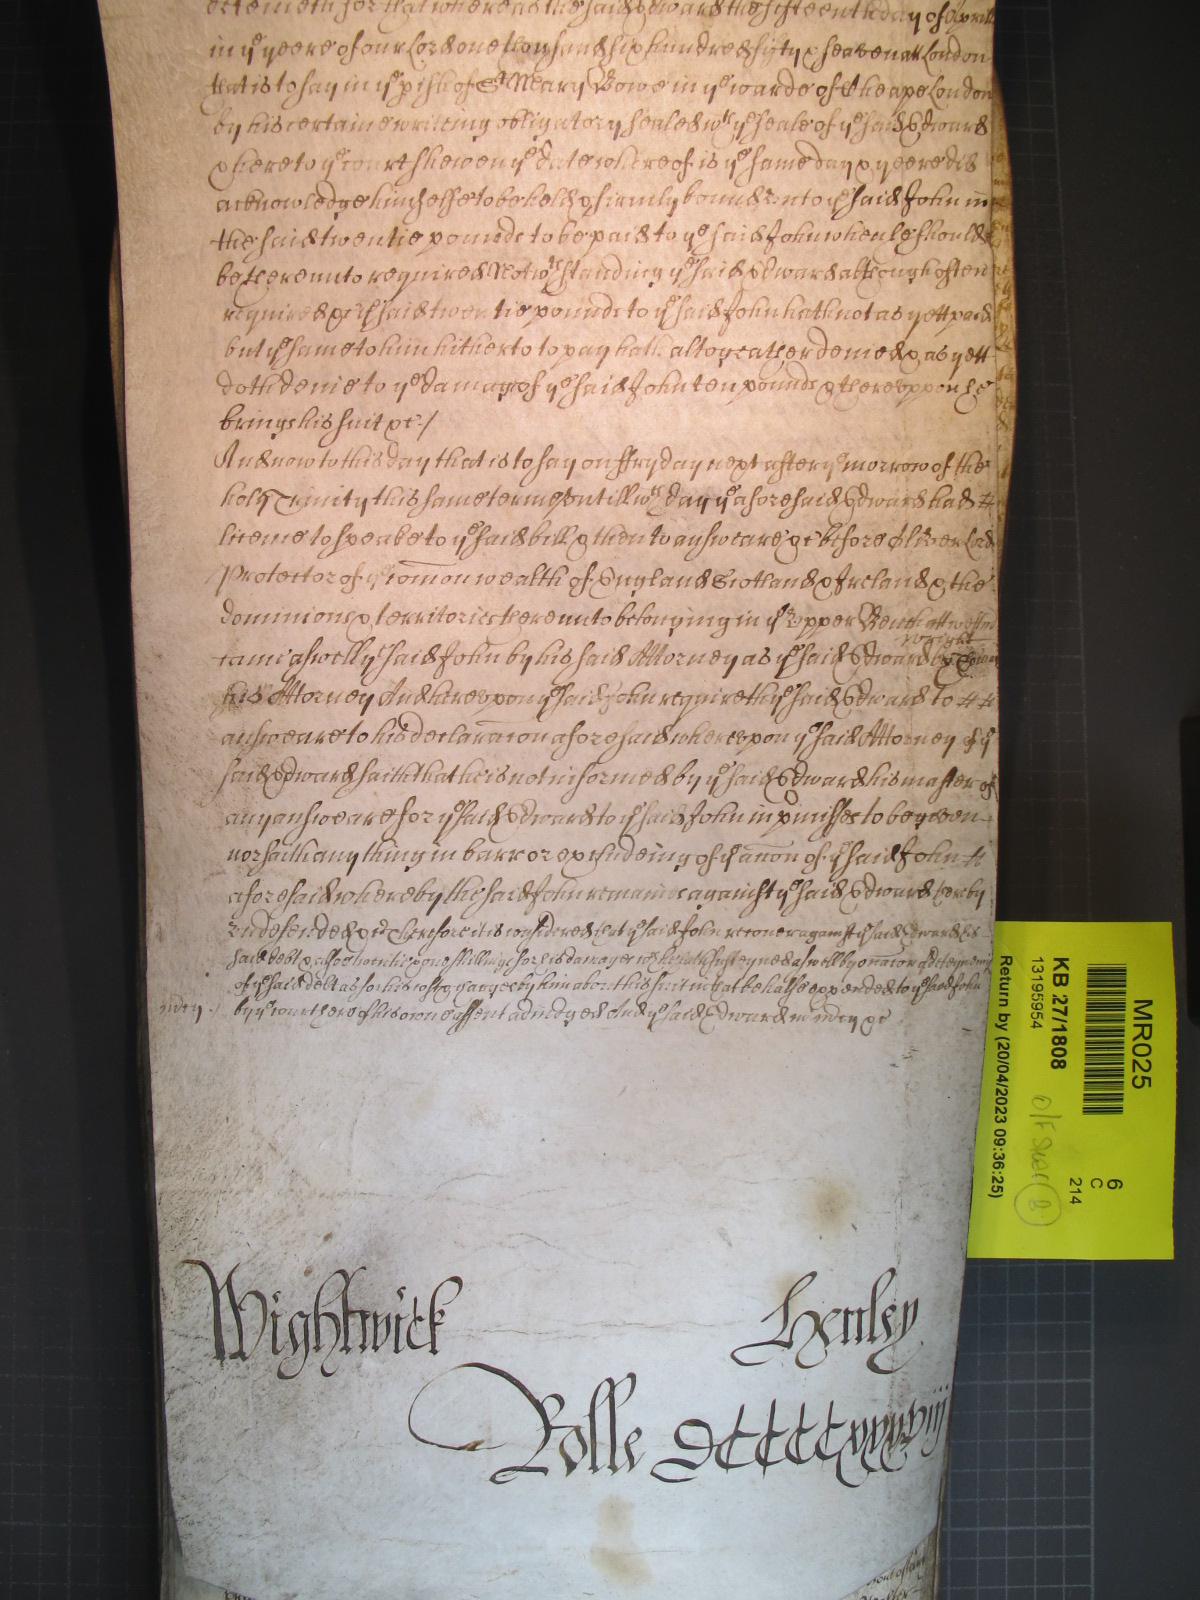 for that whereas the said Edward the fifteenth day of Aprill
in ye yeere of our Lord one thousand six hundred fifty & seaven at London
that is to say in ye pish of St Mary Bowe in ye warde of Cheape London
by his certaine writing obligatory sealed wth ye seale of ye said Edward
& here to ye court shewen ye date whereof is ye same day & yeere did
acknowledge himselfe to be held & firmly bound unto ye said John in
the said twentie pounds to be paid to ye said John when he should
be thereunto required Notwthstanding ye said Edward although often
required &c ye said twentie pounds to ye said John hath not as yett paid
but ye same to him hitherto to pay hath altogeather denied & as yett
doth denie to ye damage of ye said John ten pounds & thereuppon he
brings his suit &c /
And now to this day that is to say on ffryday next after ye morrow of the
holy Trinity this same terme untill wch day ye aforesaid Edward had
licence to speake to ye said bill & then to answeare &c before Oliver Lord
Protector of ye comonwealth of England Scotland & Ireland & the
dominions & territories thereunto belonging in ye Upper Bench att
wright
came aswell ye said John by his said Attorney as ye said Edward by
his Attorney And thereupon ye said John requireth ye said Edward to
answeare to his declaracon aforesaid whereupon ye said Attorney of ye
said Edward saith that he is not informed by ye said Edward his master of
any answeare for ye said Edward to ye said John in pmisses to be given
nor saith any thing in barr or excludeing of ye accon of ye said John
aforesaid whereby the said John remaines against ye said Edward therby
undefended &c Therefore it is considered that ye said John recover against ye said Edward his
said debt & also twentie & one shillings for his damages wch he hath susteyned aswell by occacon of deteyning
of ye said debt as for his costs & charges by him about his suit in that behalfe expended to ye said John
by ye court here of his owne assent adiudged And ye said Edward in mcy &c
mcy.
Wightwick
Henley
Rolle DCCCCxxxviij
MR025
KB 27/1808
13195954
O/F Shelf (B)
6
C
214
Return by (20/04/2023 09:36:25)